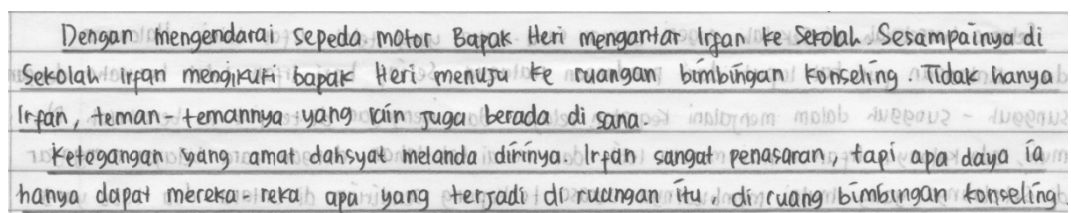 Dengan mengendarai sepeda motor Bapak Heri mengantar Irfan ke Sekolah Sesampainya di
Sekolah irfan mengikuti bapak Heri menuju ke ruangan bimbingan konseling. Tidak hanya
Irfan, teman-temannya yang lain juga berada di sana.
Ketegangan yang amat dahsyat melanda dirinya. Irfan sangat penasaran, tapi apa daya ia
hanya dapat mereka-reka apa yang terjadi di ruangan itu, di ruang bimbingan konseling